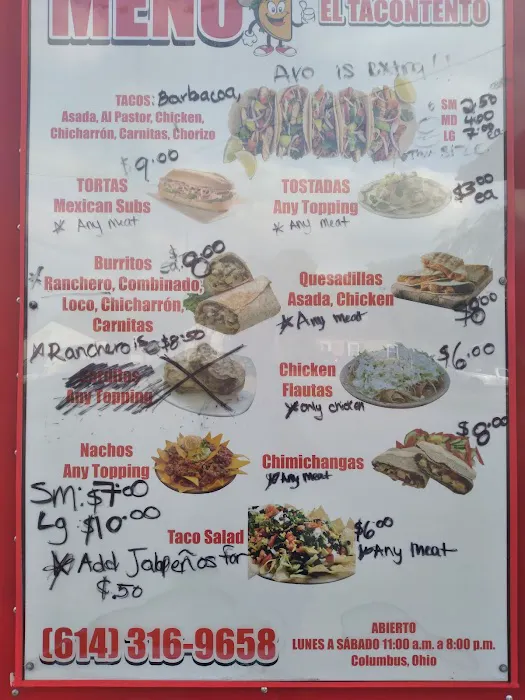 MENU
EL TACONTENTO
Avo is extra!!
TACOS: Barbacoa,
Asada, Al Pastor, Chicken,
Chicharrón, Carnitas, Chorizo
SM 2.50
MD 4.00
LG 7.00 ea
$9.00
TORTAS
Mexican Subs
* Any meat
TOSTADAS
Any Topping
* Any meat
$3.00
ea
Burritos $8.00
ea.
* Ranchero, Combinado,
Loco, Chicharrón,
Carnitas
* Ranchero is $8.50
Quesadillas
Asada, Chicken
* Any meat
Any Topping
Chicken
Flautas
* only chicken
$6.00
Nachos
Any Topping
SM: $7.00
Lg $10.00
* Add Jalapeños for
$.50
Chimichangas
* Any meat
$8.00
Taco Salad
$6.00
* Any Meat
(614) 316-9658
ABIERTO
LUNES A SÁBADO 11:00 a.m. a 8:00 p.m.
Columbus, Ohio